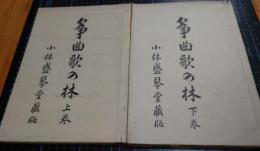 箏曲歌の林 下巻
小林盛琴堂蔵版
箏曲歌の林 上巻
小林盛琴堂蔵版